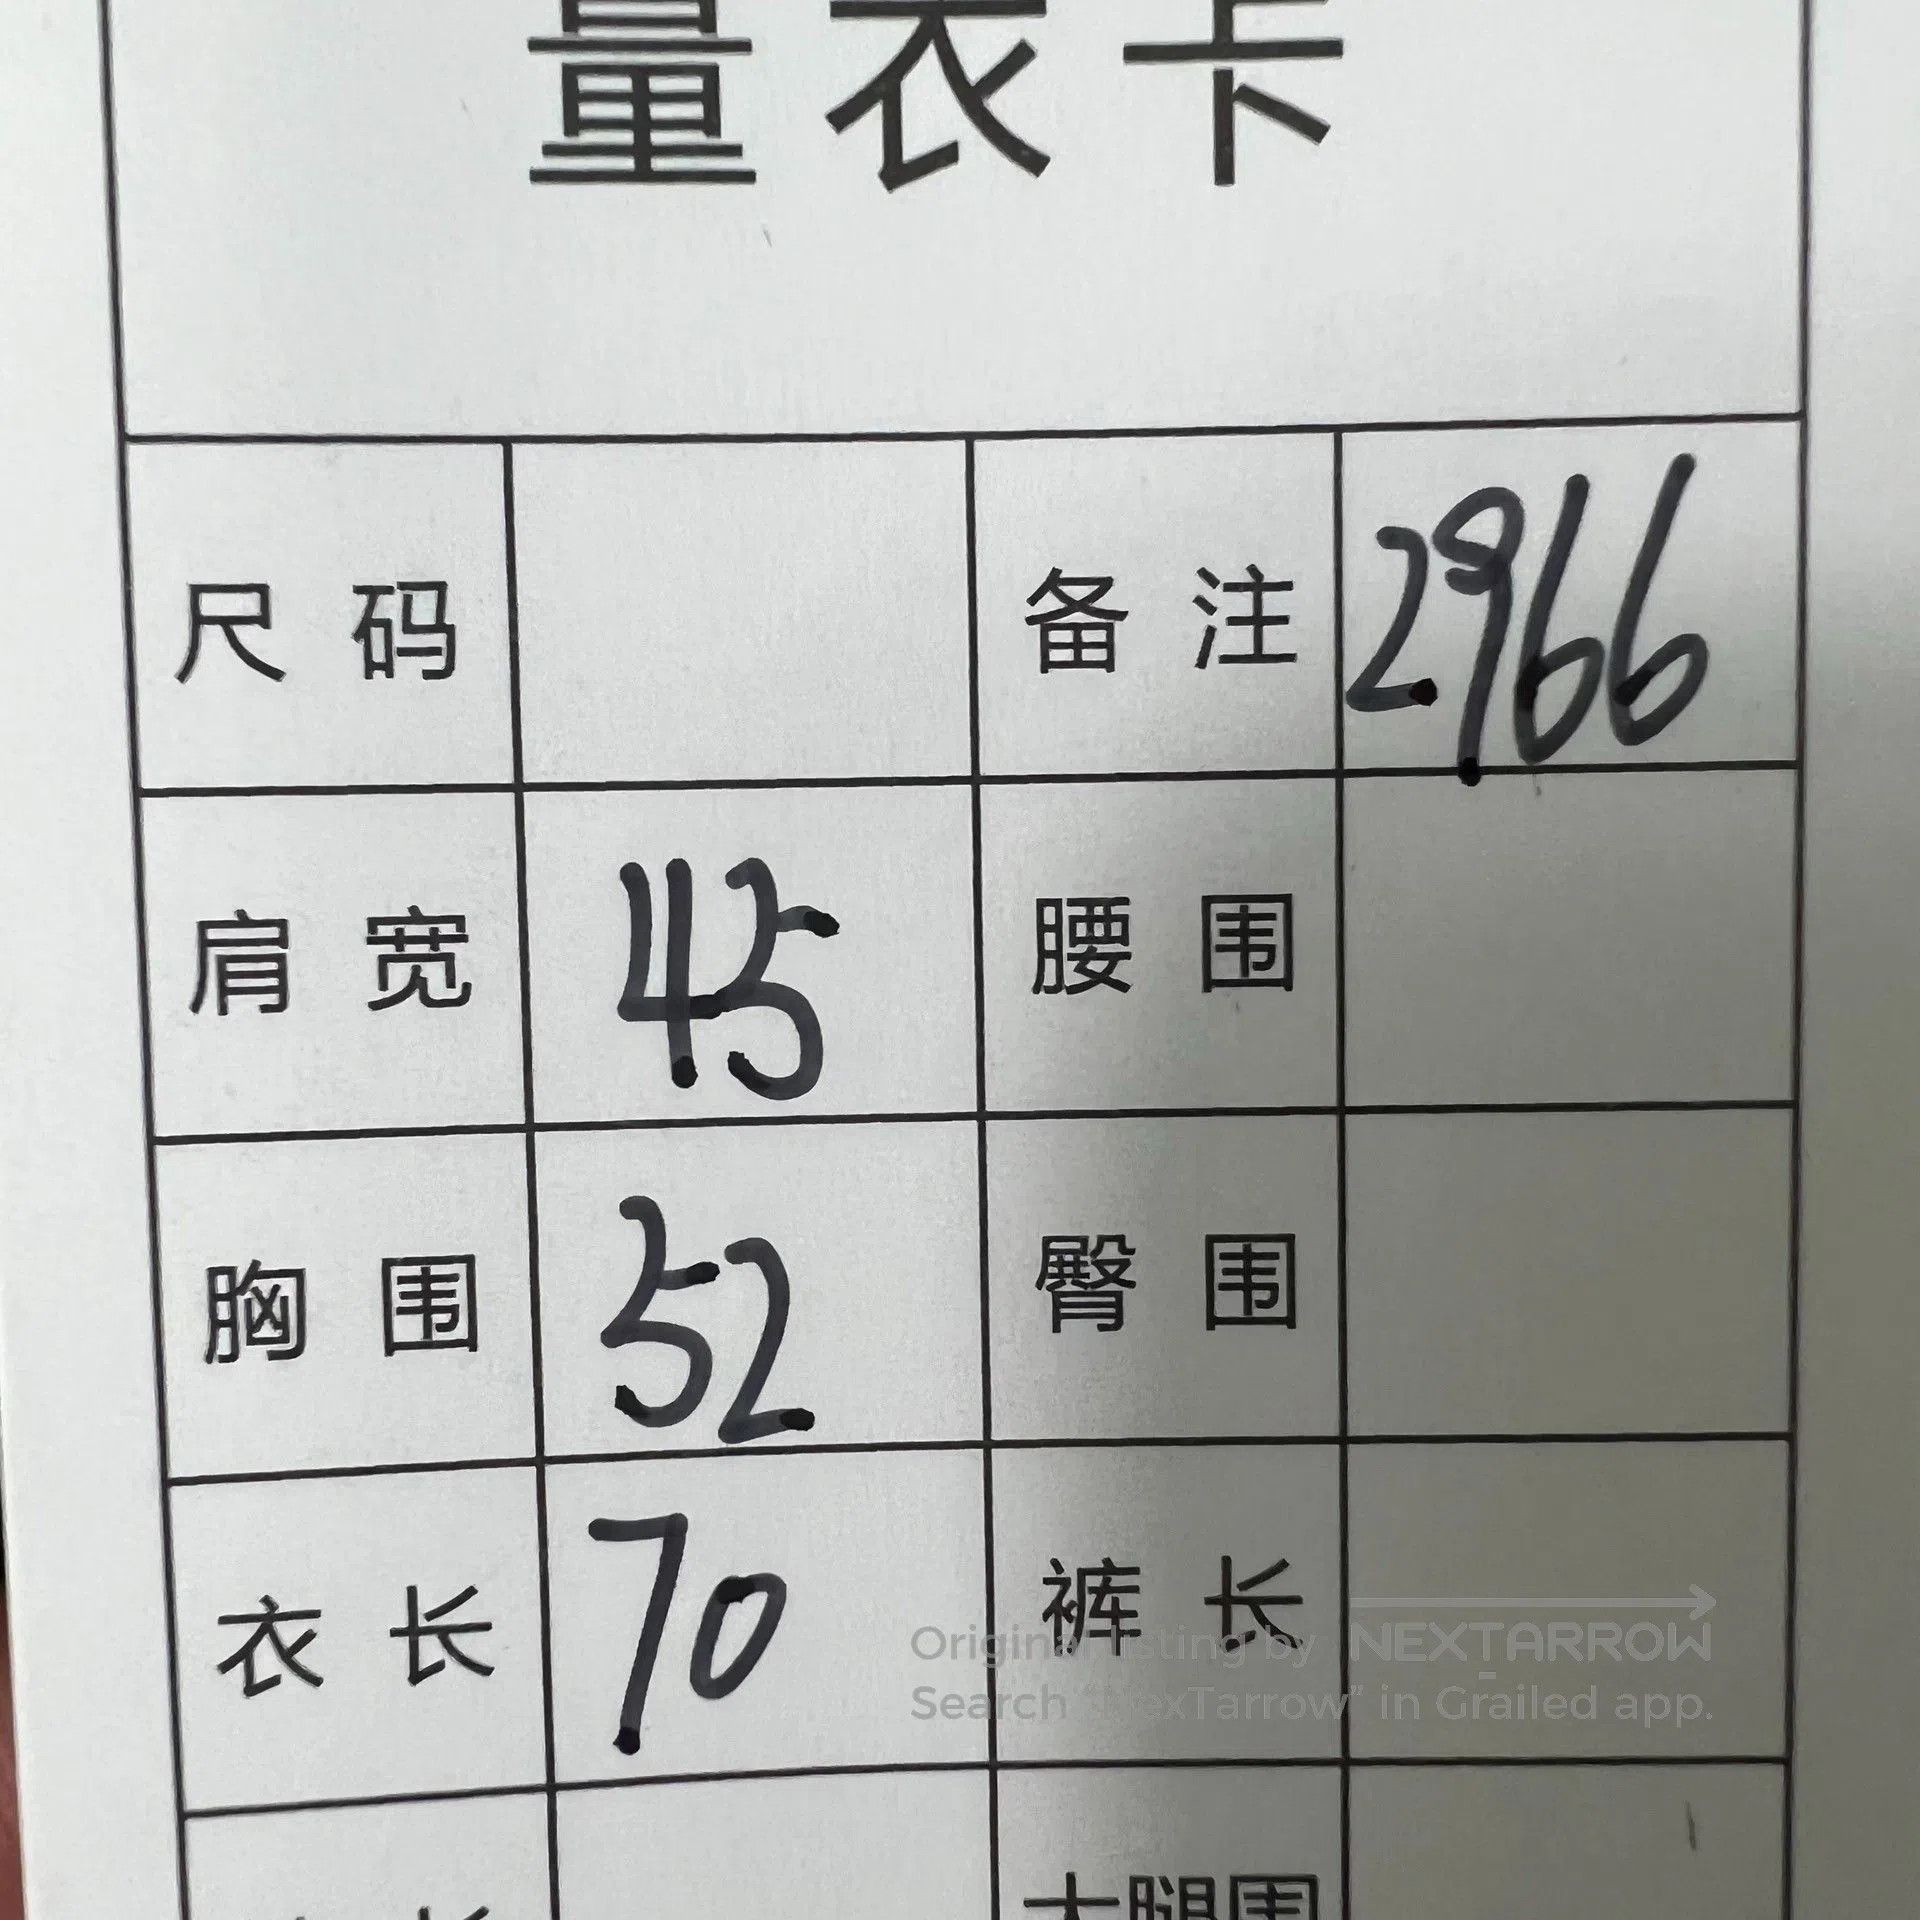 量衣卡
尺码 备注 2966
肩宽 45 腰围
胸围 52 臀围
衣长 70 裤长
Original listing by NEXTARROW
Search "NexTarrow" in Grailed app.
大腿围